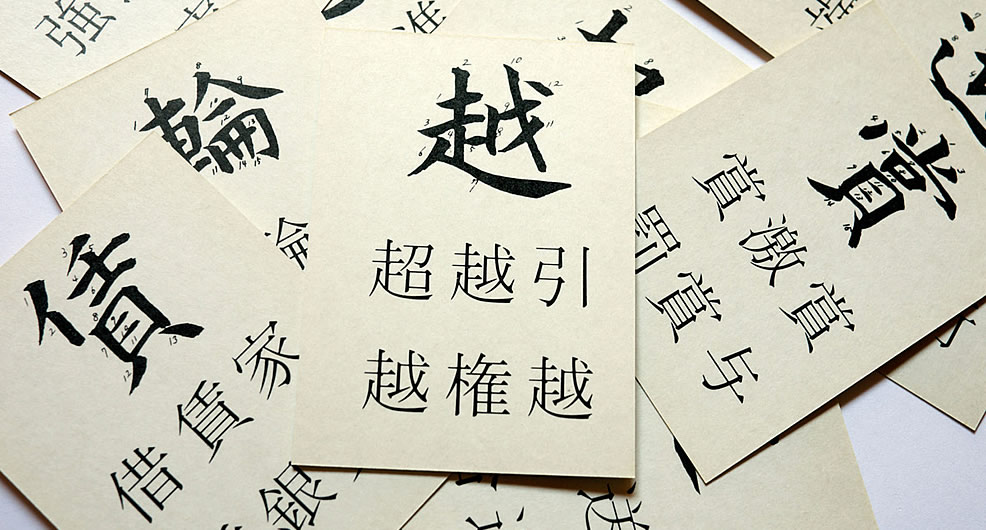 強
輪
越
引越
越権
超越
賞
賞与
激賞
賞罰
賃
家
賃銀
借